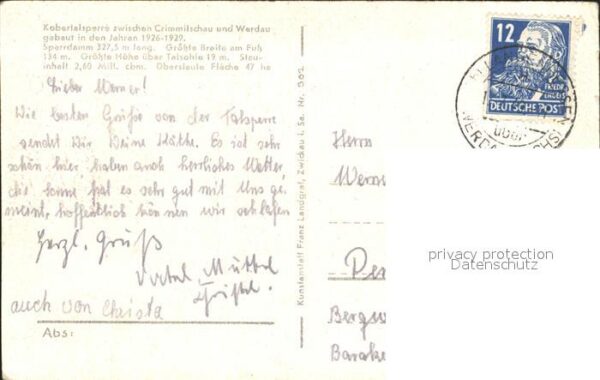 Kobertalsperre zwischen Crimmitschau und Werdau
gebaut in den Jahren 1926-1929.
Sperrdamm 327,5 m lang. Größte Breite am Fuß
134 m. Größte Höhe über Talsohle 19 m. Stau-
inhalt 2,60 Mill. cbm. Oberstaute Fläche 47 ha
Lieber Werner!
Die besten Grüße von der Talsperre
sendet Dir Deine Käthe. Es ist sehr
schön hier, haben auch herrliches Wetter,
die Sonne hat es sehr gut mit Uns ge
meint, hoffentlich können wir schlafen
Herzl. Gruß
Mutter
Christel.
auch von Christa
Abs:
Kunstanstalt Franz Landgraf, Zwickau i. Sa. Nr. 902
12
FRIEDR.
ENGELS
DEUTSCHE POST
Herrn
Werne
Bergw
Barake
privacy protection
Datenschutz